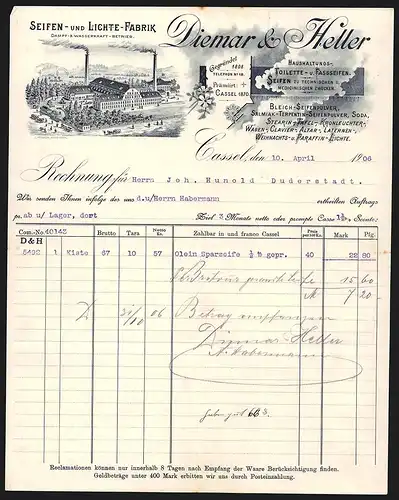 SEIFEN- UND LICHTE-FABRIK
DAMPF- & WASSERKRAFT-BETRIEB.
Diemar & Heller
Gegründet 1806
TELEPHON No 18.
Prämiirt: CASSEL 1870.
HAUSHALTUNGS-
TOILETTE- U. FASSSEIFEN.
SEIFEN ZU TECHNISCHEN U.
MEDICINISCHEN ZWECKEN.
BLEICH-SEIFENPULVER,
SALMIAK-TERPENTIN-SEIFENPULVER, SODA,
STEARIN-TAFEL-, KRONLEUCHTER-,
WAGEN-, CLAVIER-, ALTAR-, LATERNEN-,
WEIHNACHTS- U. PARAFFIN-LICHTE.
Cassel, den 10. April 1906
Rechnung für Herrn Joh. Kunold Duderstadt.
Wir senden Ihnen infolge des uns d.u/Herrn Habermann ertheilten Auftrags
pr. ab u/ Lager, dort Ziel 3 Monate netto oder prompte Casse 1% Sconto:
Com.-No. 40143 Brutto Tara Netto Ko. Zahlbar in und franco Cassel Preis per 100 Ko. Mark Pfg.
D & H
5402 1 Kiste 67 10 57 Olein Sparseife ½ ℔ gepr. 40 22 80
15 60
M 7 20
31/10 06 Betrag empfangen
Diemar & Heller
A. Habermann
Reclamationen können nur innerhalb 8 Tagen nach Empfang der Waare Berücksichtigung finden.
Geldbeträge unter 400 Mark erbitten wir uns durch Posteinzahlung.